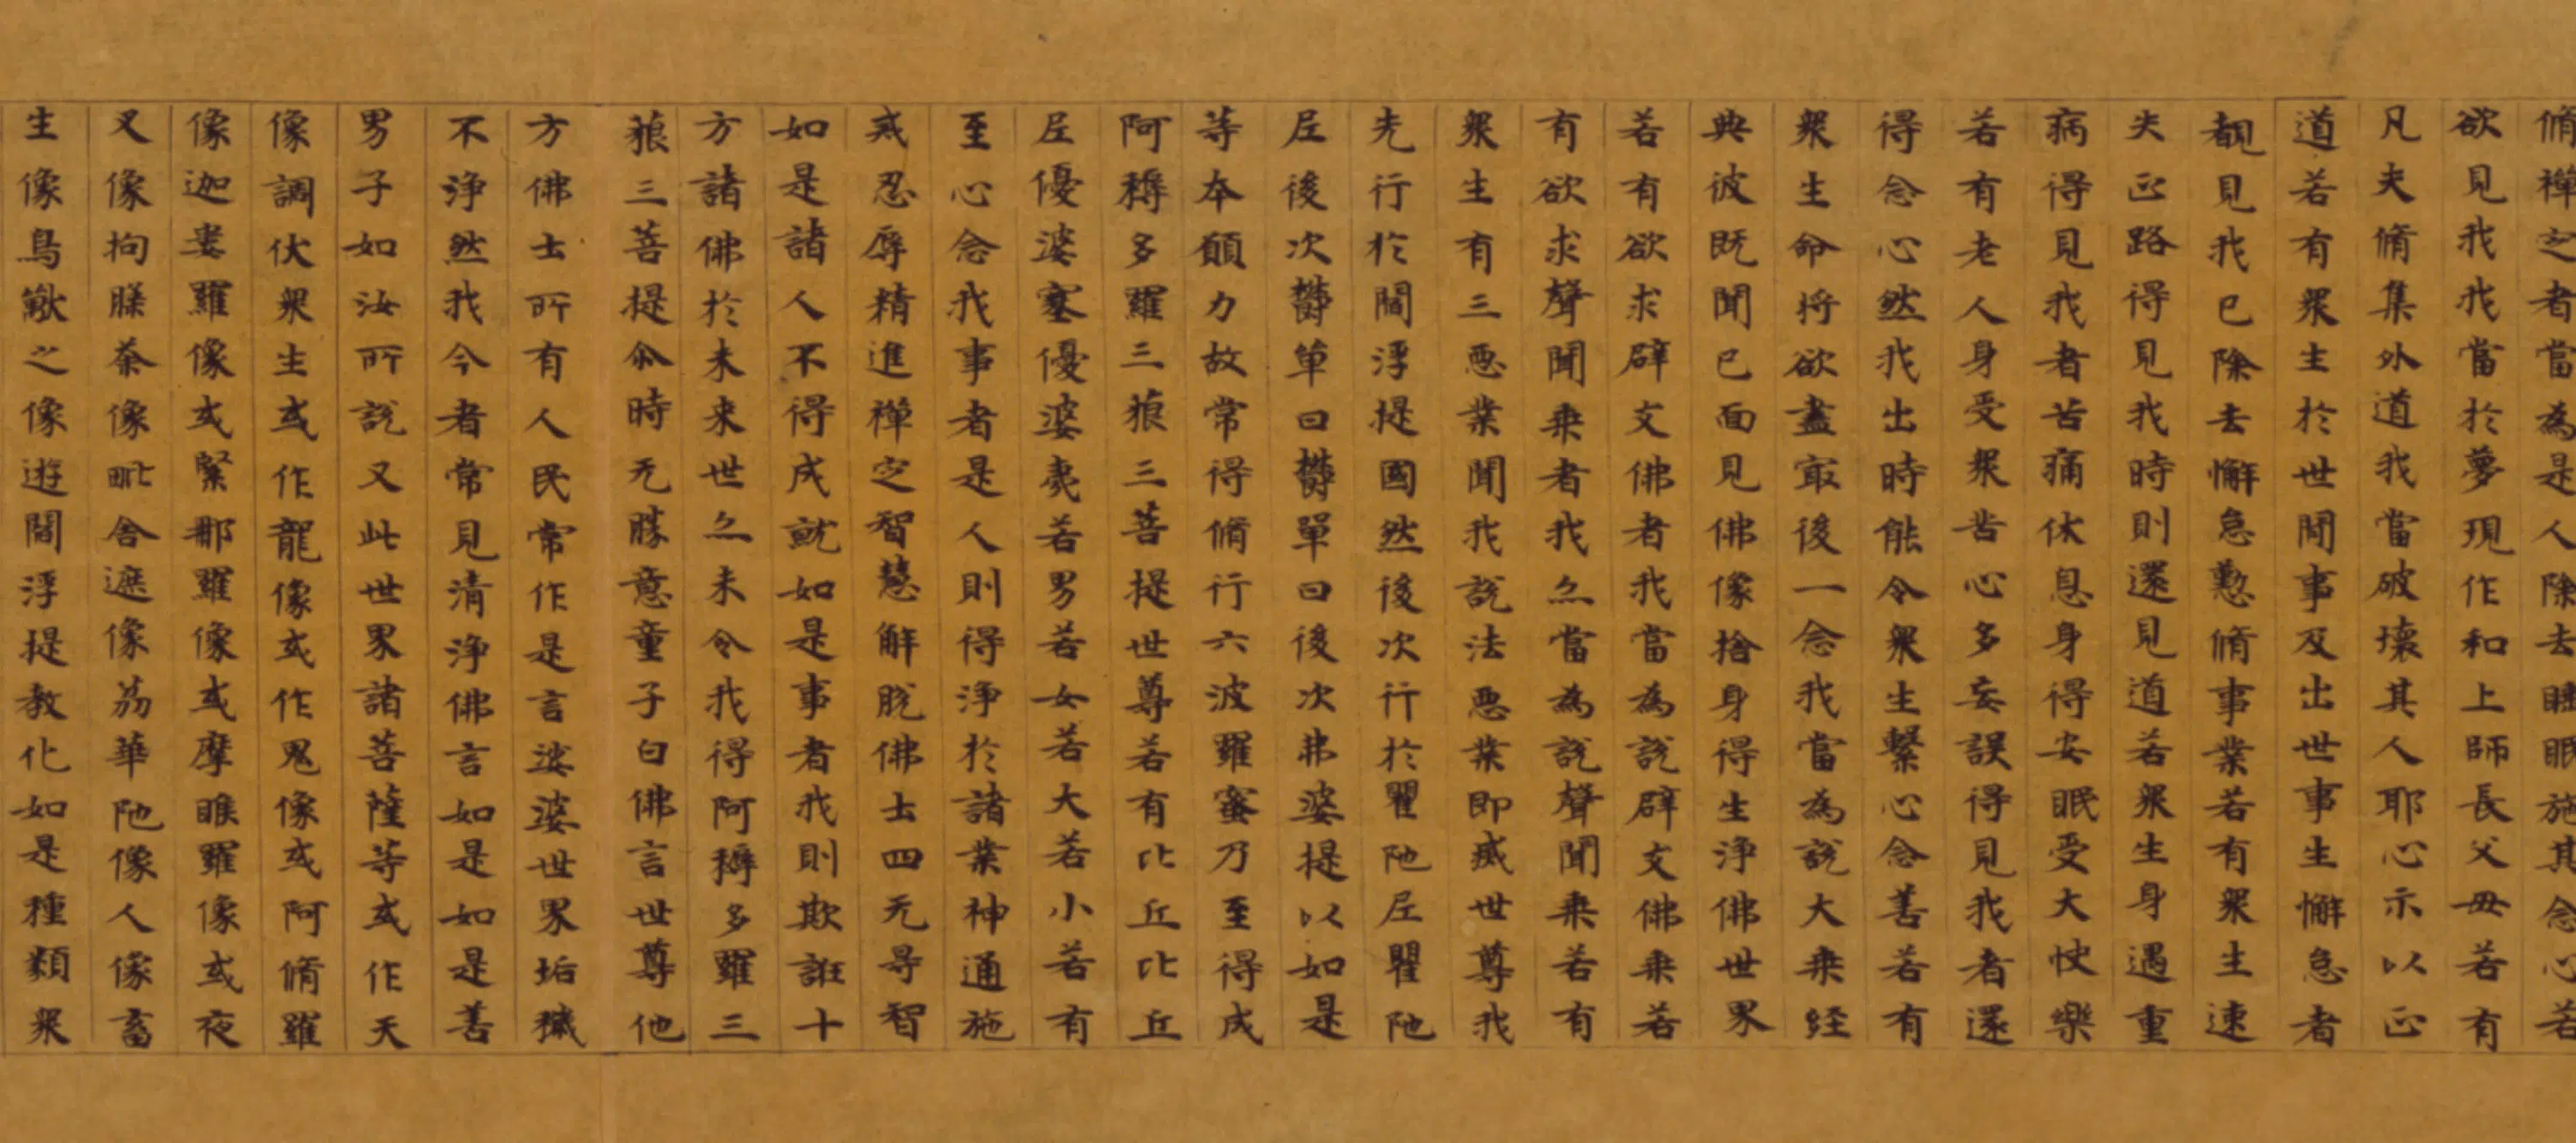 脩禪定者當為是人除去睡眠施其念心若
欲見我我當於夢現作和上師長父毋若有
凡夫脩集外道我當破壞其人耶心示以正
道若有衆生於世間事及出世事生懈怠者
覩見我已除去懈怠懃脩事業若有衆生速
失正路得見我時則還見道若衆生身遇重
病得見我者苦痛休息身得安眠受大快樂
若有老人身受衆苦心多妄誤得見我者還
得念心然我出時能令衆生繫心念善若有
衆生命将欲盡㝡後一念我當為說大乗經
典彼既聞已面見佛像捨身得生淨佛世界
若有欲求辟支佛者我當為說辟支佛乗若
有欲求聲聞乗者我亦當為說聲聞乗若有
衆生有三惡業聞我說法惡業即滅世尊我
先行於閻浮提國然後次行於瞿陁尼瞿陁
尼後次欝單曰欝單曰後次弗婆提以如是
等本願力故常得脩行六波羅蜜乃至得成
阿耨多羅三藐三菩提世尊若有比丘比丘
尼優婆塞優婆夷若男若女若大若小若有
至心念我事者是人則得淨於諸業神通施
戒忍辱精進禪定智慧解脫佛土四无㝵智
如是諸人不得成就如是事者我則欺誑十
方諸佛於未来世亦未令我得阿耨多羅三
藐三菩提尒時无勝意童子白佛言世尊他
方佛土所有人民常作是言娑婆世界垢穢
不淨然我今者常見清淨佛言如是如是善
男子如汝所說又此世界諸菩薩等或作天
像調伏衆生或作龍像或作鬼像或阿脩羅
像迦婁羅像或緊那羅像或摩睺羅像或夜
叉像拘䏶荼像毗舍遮像荔華陁像人像畜
生像鳥獸之像遊閻浮提教化如是種類衆